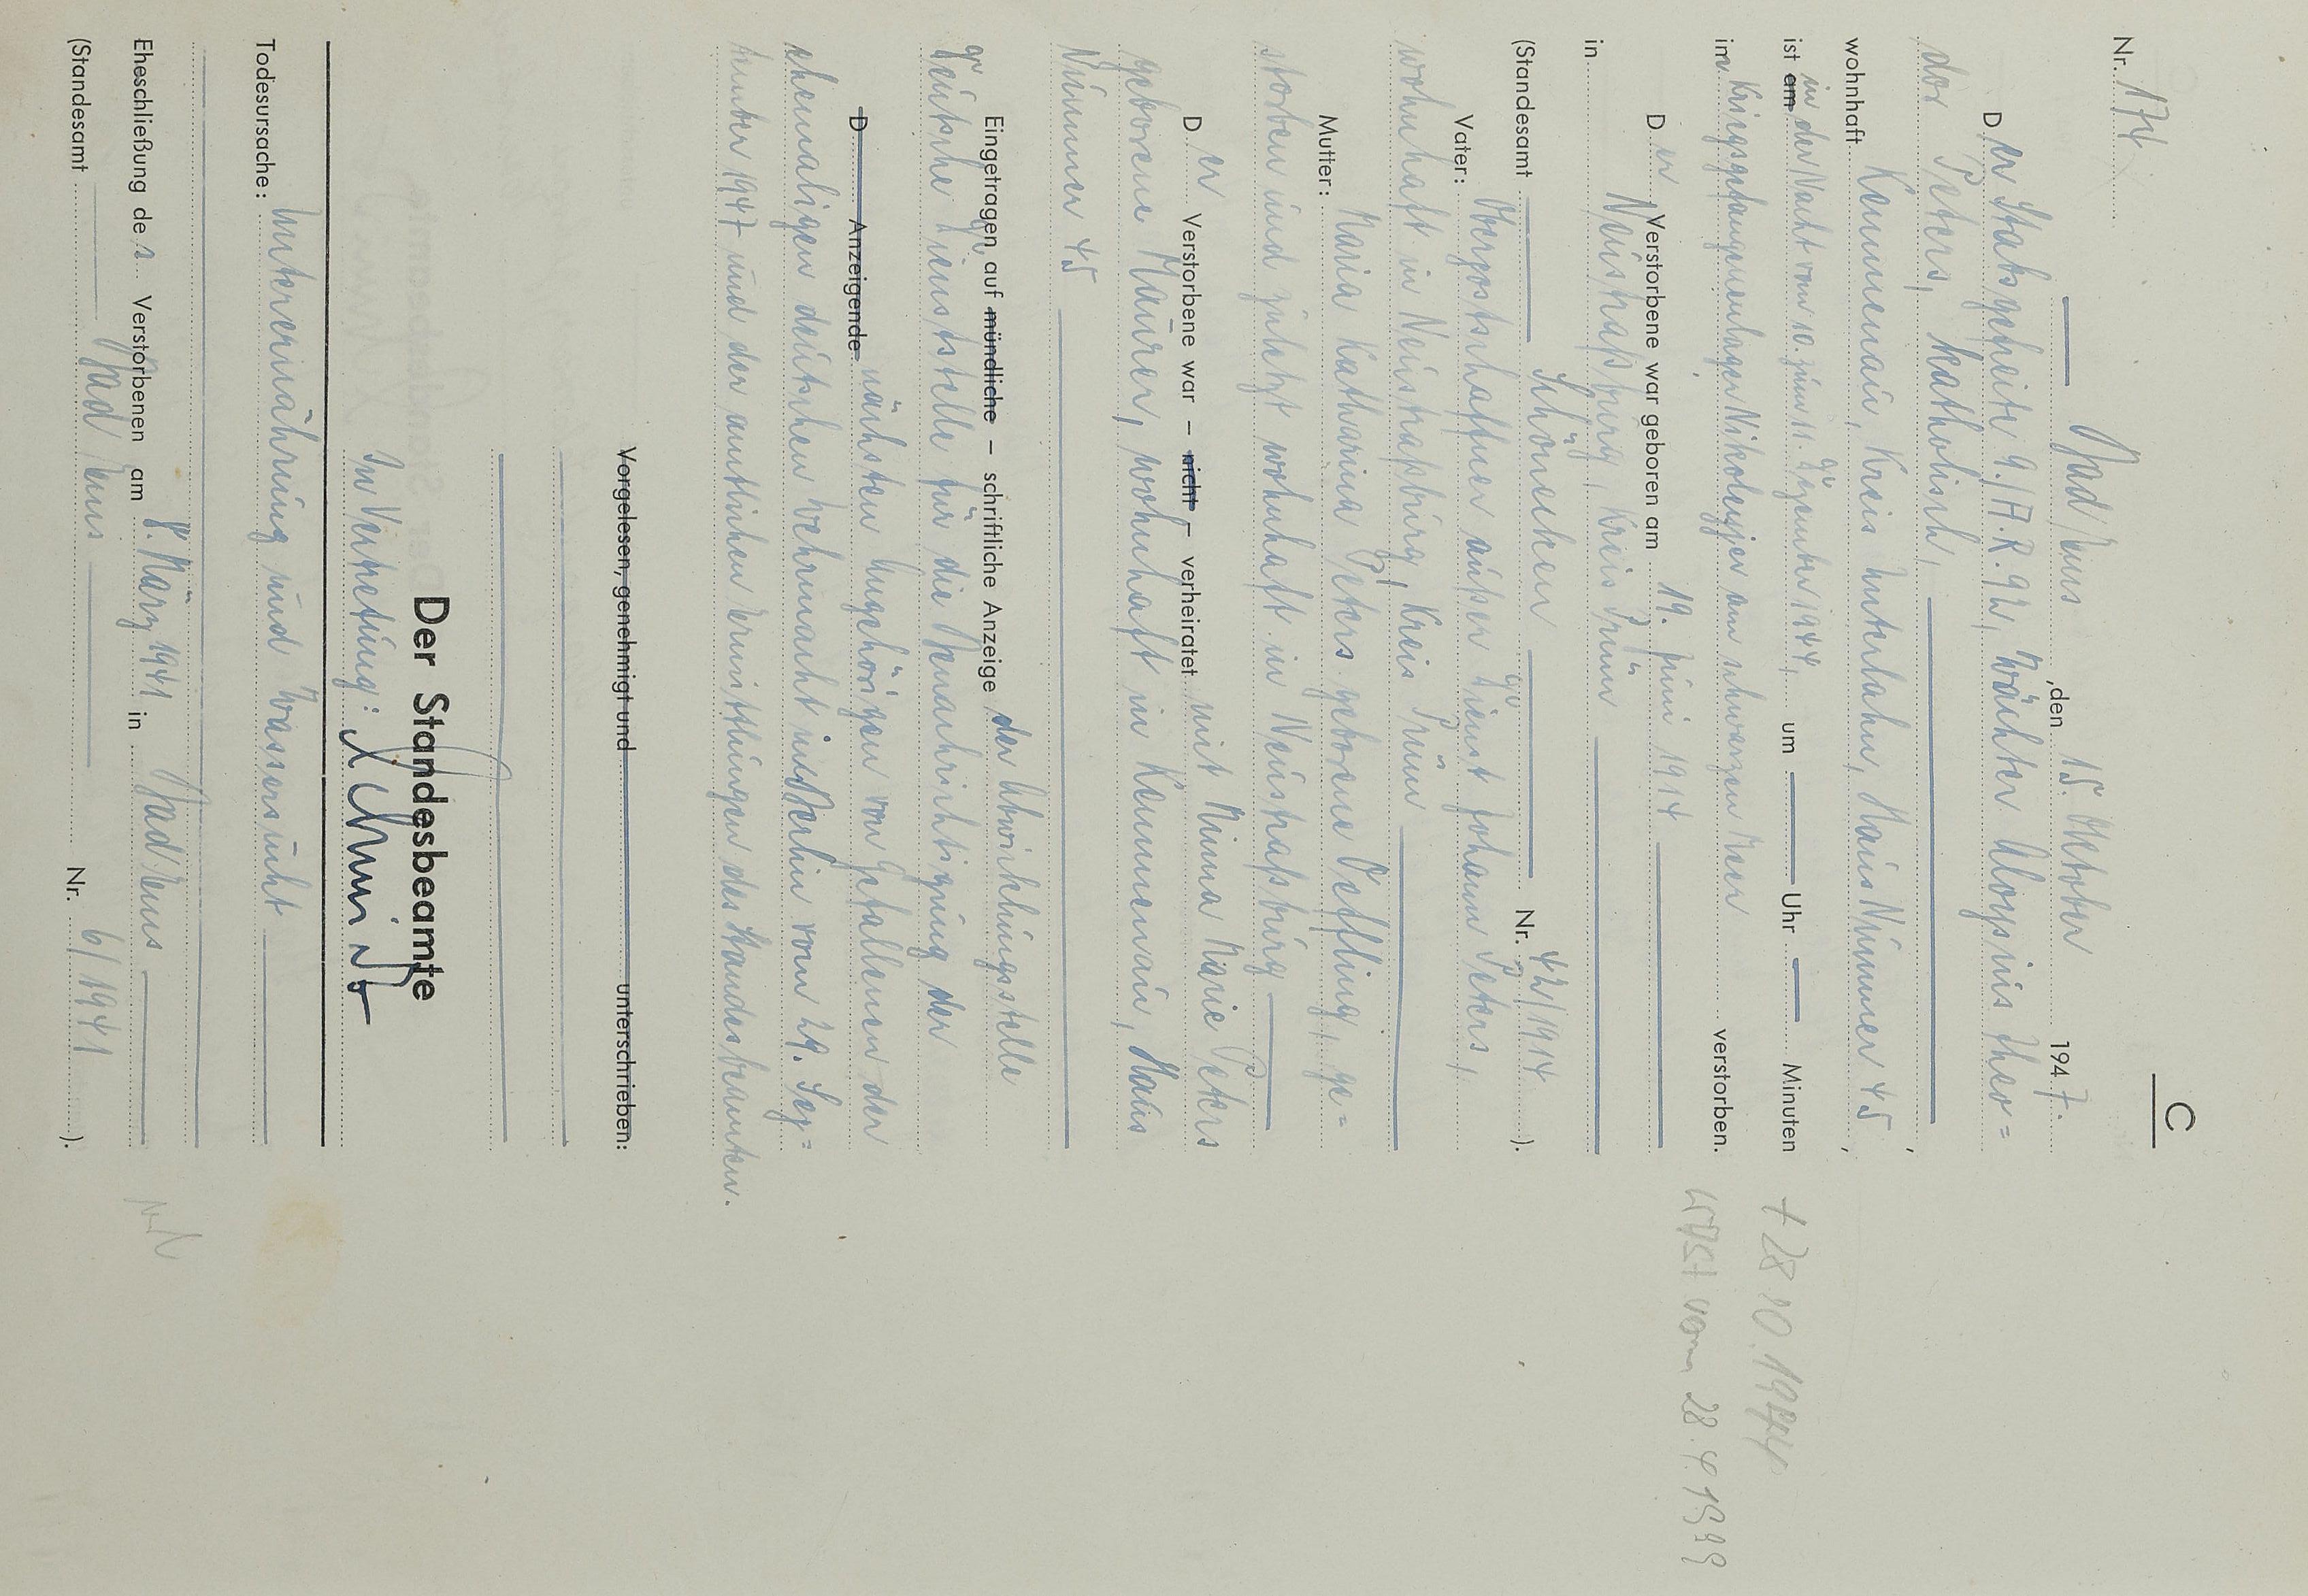 C
Nr. 174
Bad Ems, den 15. Oktober 1947.
Der Stabsgefreite 9./A.R.92, Wächter Aloysius Theo=
dor Peters, katholisch,
wohnhaft Kemmenau, Kreis Unterlahn, Haus Nummer 45,
ist am in der Nacht vom 10. zum 11. Dezember 1944, um Uhr Minuten
im Kriegsgefangenenlager Nikolajew am schwarzen Meer verstorben.
† 28 10. 1944
vom 28.4.1999
Der Verstorbene war geboren am 19. Juni 1914
in Neustraßburg, Kreis Prüm
(Standesamt Schönecken Nr. 42/1914).
Vater: Oberpostschaffner außer Dienst Johann Peters,
wohnhaft in Neustraßburg, Kreis Prüm
Mutter: Maria Katharina Peters geborene Oeffling, ge=
storben und zuletzt wohnhaft in Neustraßburg
Der Verstorbene war – nicht – verheiratet mit Minna Marie Peters
geborene Maurer, wohnhaft in Kemmenau, Haus
Nummer 45
Eingetragen auf mündliche – schriftliche Anzeige der Abwicklungsstelle
Deutsche Dienststelle für die Benachrichtigung der
D Anzeigende nächsten Angehörigen von Gefallenen der
ehemaligen deutschen Wehrmacht in Berlin vom 29. Sep=
tember 1947 und der amtlichen Ermittlungen des Standesbeamten.
Vorgelesen, genehmigt und unterschrieben:
Der Standesbeamte
In Vertretung: Schmidt
Todesursache: Unterernährung und Wassersucht
Eheschließung des Verstorbenen am 8. März 1941 in Bad Ems
(Standesamt Bad Ems Nr. 6/1941).